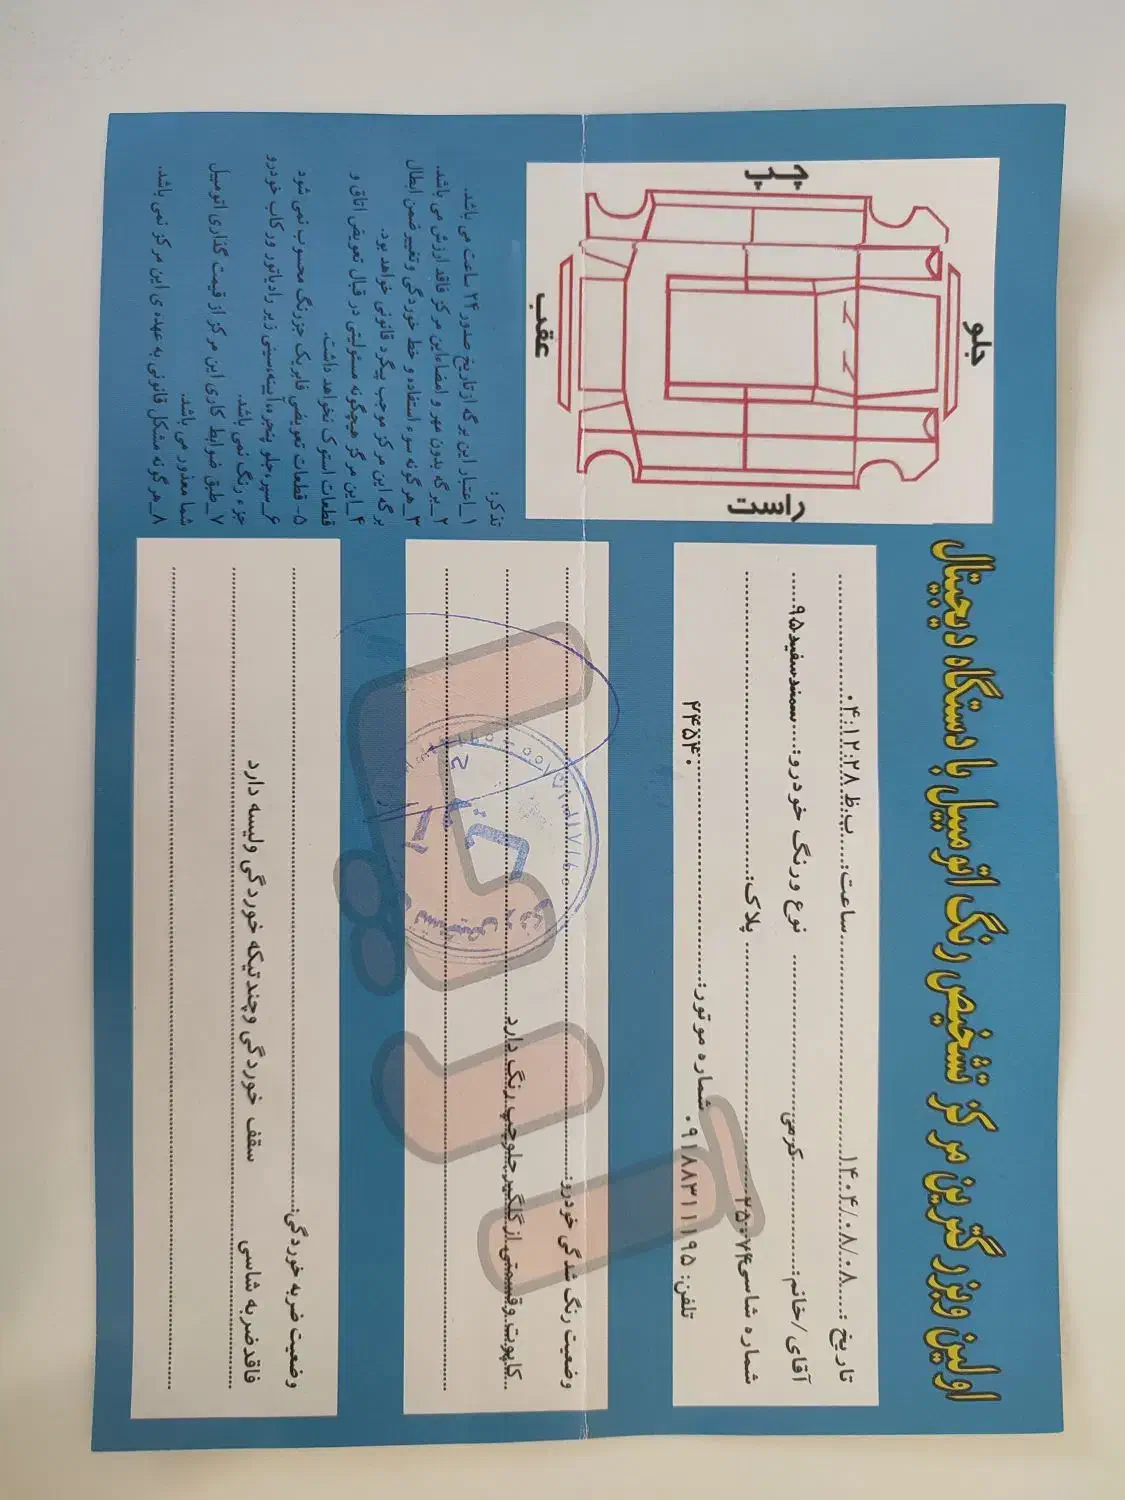 اولین وبزرگترین مرکز تشخیص رنگ اتومبیل با دستگاه دیجیتال
تاریخ :....۱۴۰۴/۰۸/۰۸.......ساعت:....۰۴:۱۲:۲۸ ب.ظ
آقای/خانم:.......کرمی....... نوع ورنگ خودرو:....سمندسفید۹۵....
شماره شاسی۲۵۰۰۷۴....... پلاک:.......
تلفن: ۰۹۱۸۸۳۱۱۱۹۵ شماره موتور:.......۲۴۵۴۰
وضعیت رنگ شدگی خودرو:
کاپوت وقسمتی از گلگیر جلوچپ رنگ دارد
وضعیت ضربه خوردگی:
فاقدضربه شاسی سقف خوردگی وچندتیکه خوردگی ولیسه دارد
چپ
جلو
عقب
راست
تذکر:
۱_اعتبار این برگه از تاریخ صدور ۲۴ ساعت می باشد.
۲_برگه بدون مهر و امضاءاین مرکز فاقد ارزش می باشد.
۳_هرگونه سوء استفاده و خط خوردگی وتغییر ضمن ابطال
برگه این مرکز موجب پیگرد قانونی خواهد بود.
۴_این مرکز هیچگونه مسئولیتی در قبال تعویض اتاق و
قطعات استوک نخواهد داشت.
۵- قطعات تعویضی فابریک جزرنگ محسوب نمی شود
۶_سپرجلو پنجره،آیینه،سینی زیر رادیاتور ورکاب خودرو
جزء رنگ نمی باشد.
۷_طبق ضوابط کاری این مرکز از قیمت گذاری اتومبیل
شما معذور می باشد.
۸_هرگونه مشکل قانونی به عهده ی این مرکز نمی باشد.